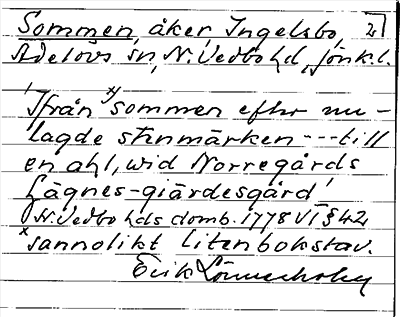 Sommen, åker, Ingelsbo, 21
Adelövs sn, N. Vedbo hd, Jönk.l.
'Ifrån x) sommen efter nu-
lagde stenmärken --- till
en ahl, wid Norregårds
Lägnes-giärdesgård'
N. Vedbo hds domb. 1778 VT § 42
x sannolikt liten bokstav.
Erik